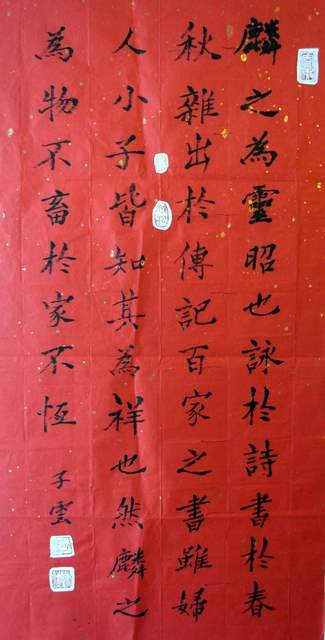 麟之為靈昭也詠於詩書於春
秋雜出於傳記百家之書雖婦
人小子皆知其為祥也然麟之
為物不畜於家不恆
子雲